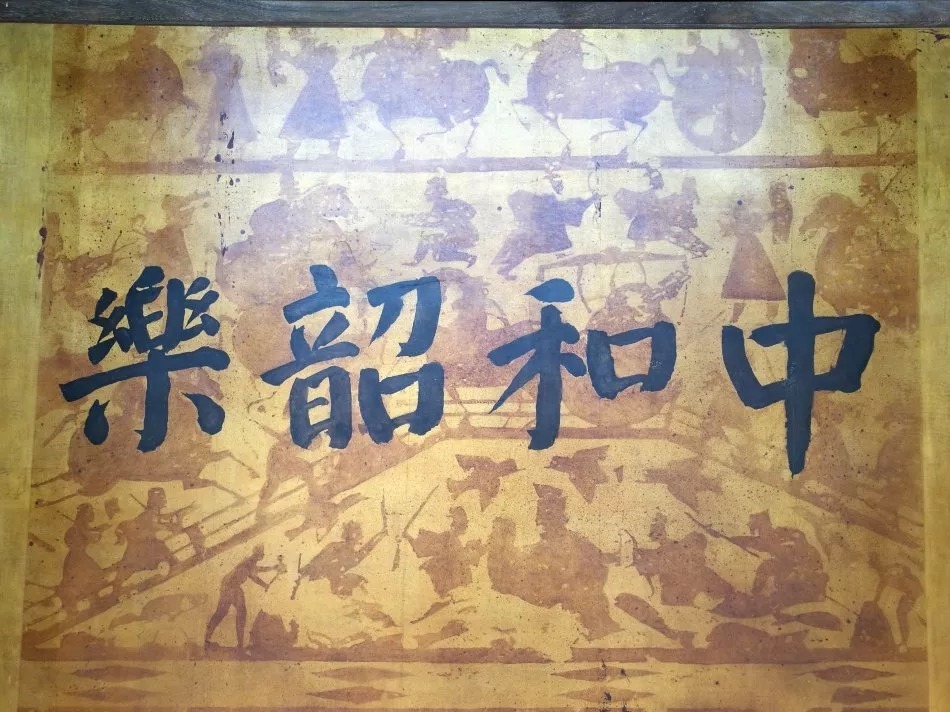 中和韶樂